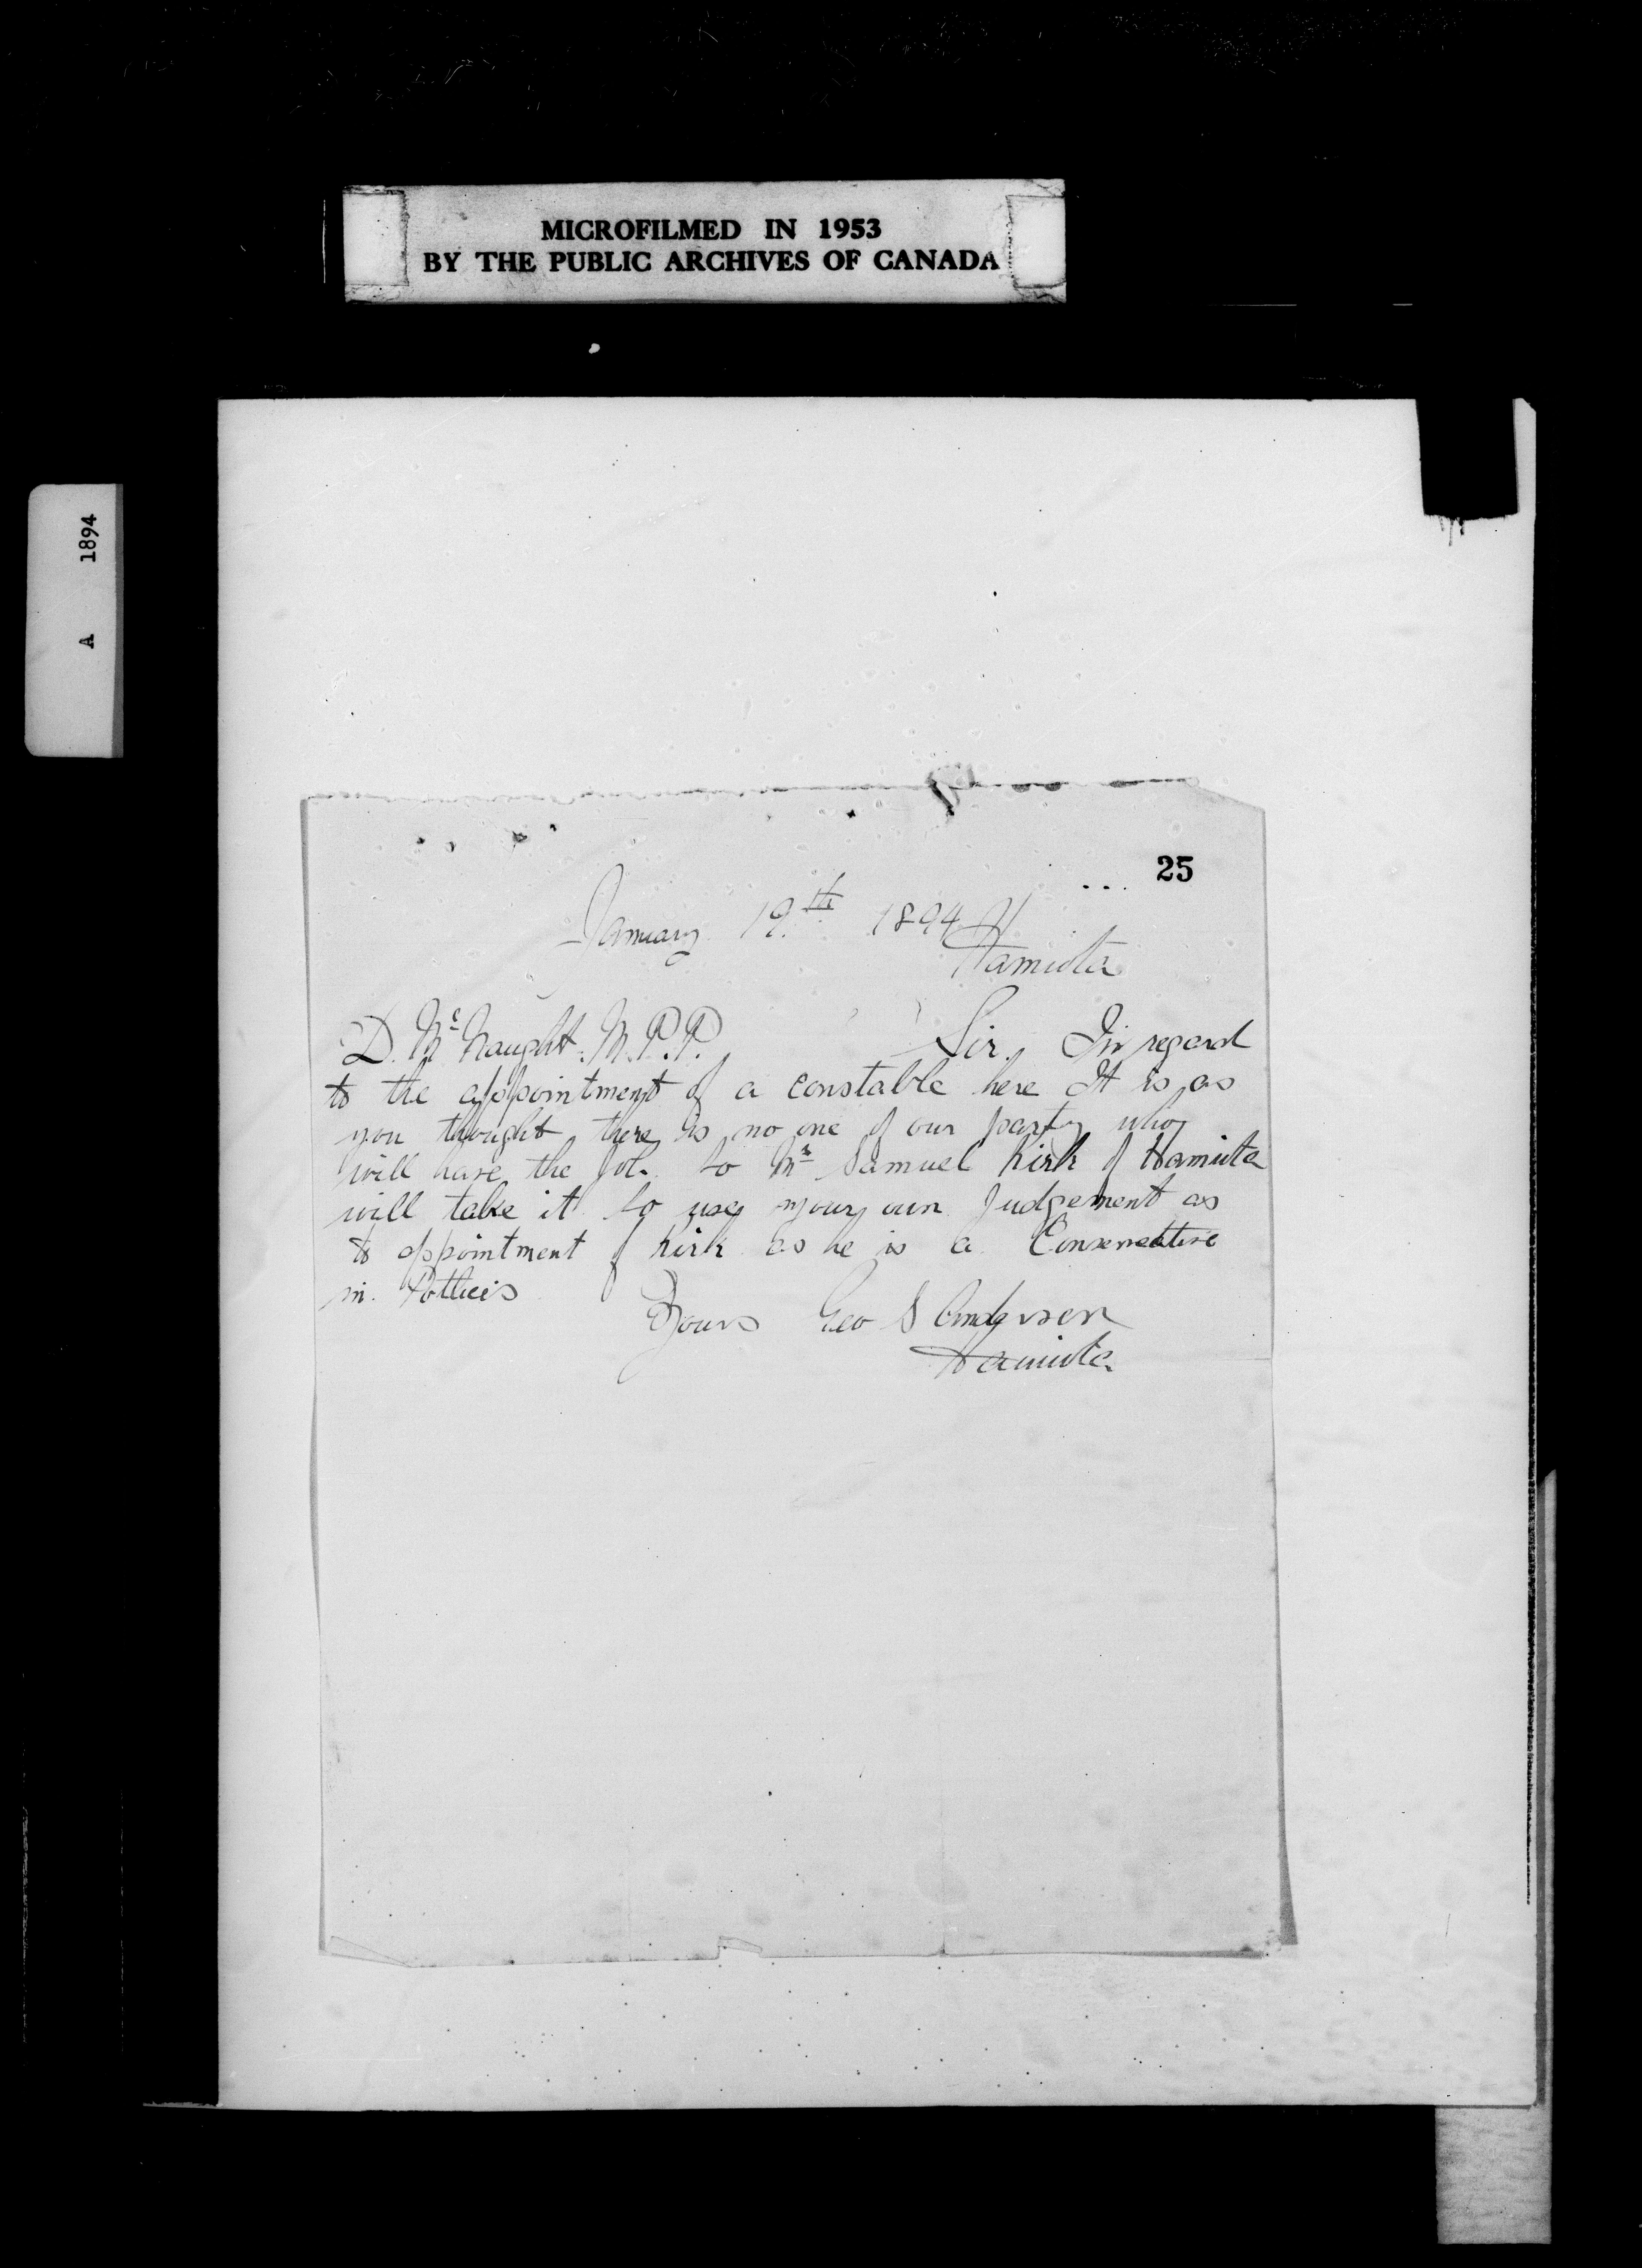 MICROFILMED IN 1953
BY THE PUBLIC ARCHIVES OF CANADA
A 1894
25
January 19th 1894
Hamiota
D. Mc Naught. M.P.P. Sir. In regard
to the appointment of a constable here It is as
you thought there is no one of our party who
will have the Job. So Mr Samuel Kirk of Hamiota
will take it So use your own Judgement as
to appointment of Kirk as he is a Conservative
in. Politics
Yours Geo S Anderson
Hamiota